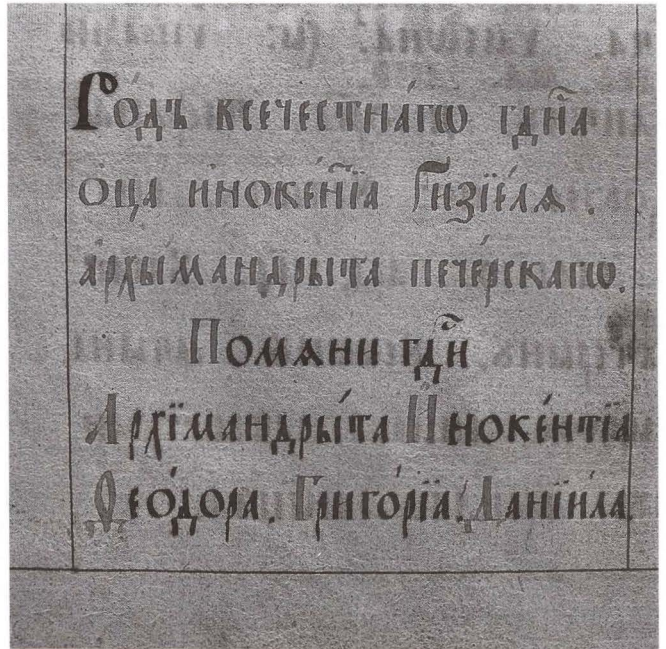 Ро́дъ всече́стна́гѡ гдн҃а
о҆ц҃а и҆ноке́нтїа Гизїе́лѧ .
а҆рхыма́ндры́та пече́рскагѡ .
Помѧни гд҃и
Архїма́ндры́та И҆ноке́нтїа
Ѳео́дора . Григо́рїа . Данїи́ла